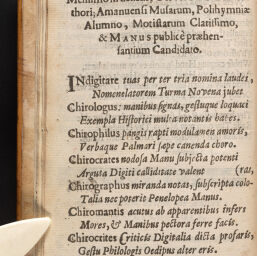 thori; Amanuensi Musarum, Polihymniæ
Alumno, Motistarum Clarissimo,
& MANUS publicè præhen-
santium Candidato.
INdigitare tuas per ter tria nomina laudes,
Nomenclatorem Turma Novena jubet
Chirologus: manibus signas, gestuque loquaci
Exempla Historici multa notantis habes.
Chirophilus pangis rapti modulamen amoris,
Verbaque Palmari sæpe canenda choro.
Chirocrates nodosa Manu subjecta potenti
Arguta Digiti calliditate valent (ras,
Chirographus miranda notas, subscripta colo-
Talia nec poterit Penelopea Manus.
Chiromantis acutus ab apparentibus infers
Mores, & Manibus pectora ferre facis.
Chirocrites Criticis Digitalia dicta profaris,
Gestu Philologis Oedipus alter eris.